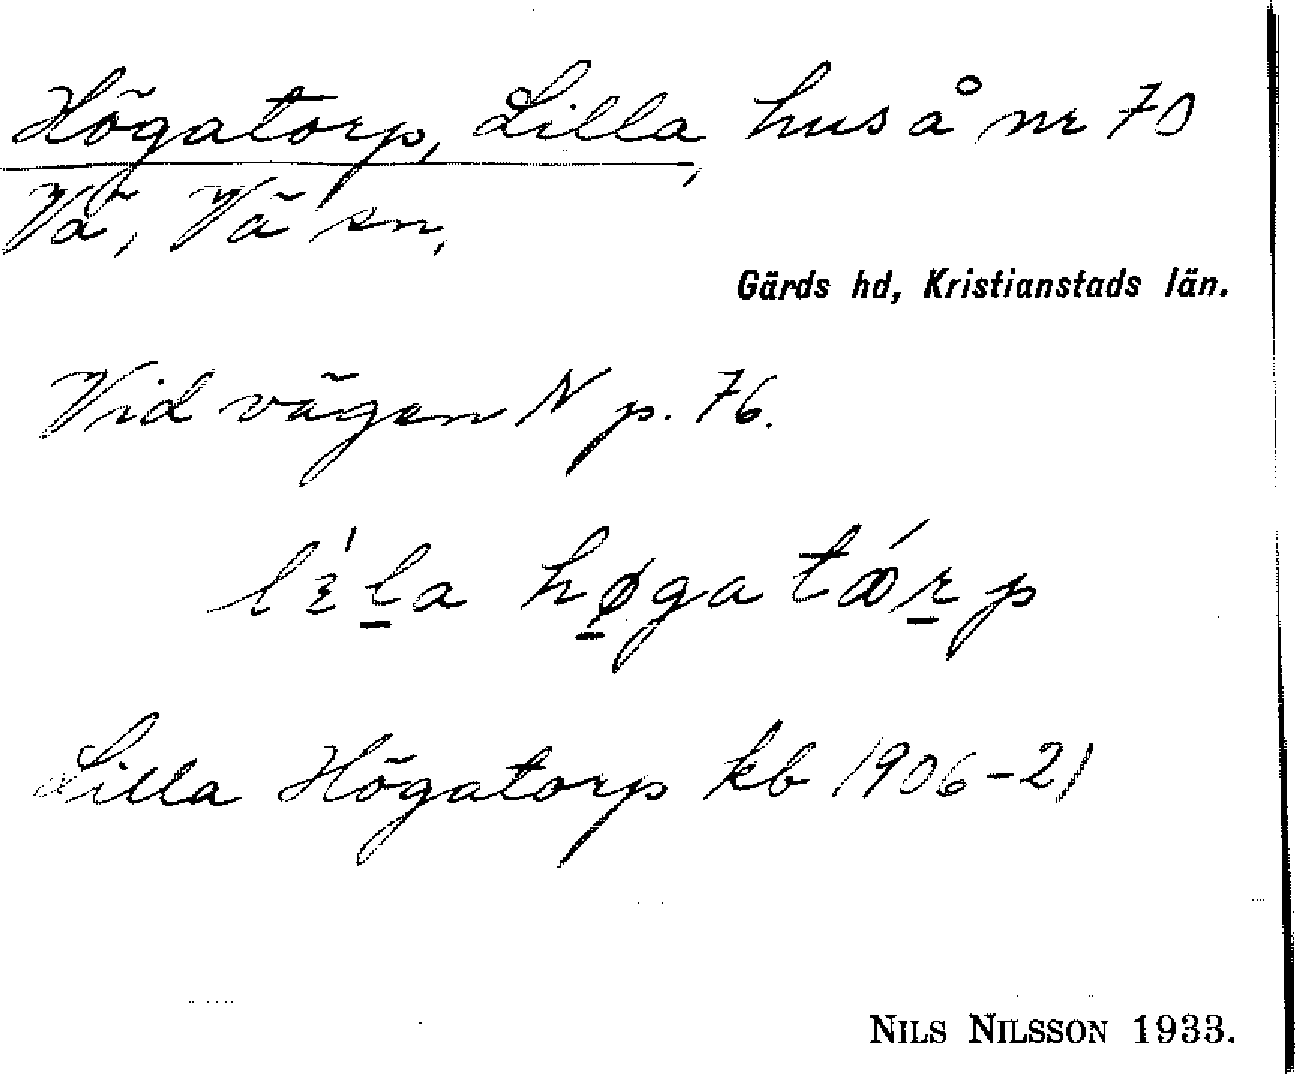 Högatorp, Lilla, hus å nr 70
Vä, Vä sn,
Gärds hd, Kristianstads län.
Vid vägen N p. 76.
lɛ́l̠a hø̠gatꝏ́r̠p
Lilla Högatorp kb 1906-21
NILS NILSSON 1933.